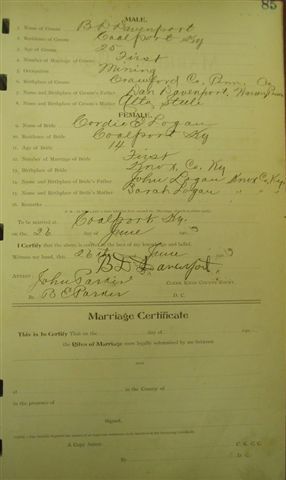 85
MALE.
1. Name of Groom B D Davenport
2. Residence of Groom Coalport Ky
3. Age of Groom 25
4. Number of Marriage of Groom First
5. Occupation Mining
6. Birthplace of Groom Crawford Co. Penn.
7. Name and Birthplace of Groom's Father Dan Davenport, Warren Penn
8. Name and Birthplace of Groom's Mother Alta Steele
FEMALE.
9. Name of Bride Cordie E Logan
10. Residence of Bride Coalport Ky
11. Age of Bride 14
12. Number of Marriage of Bride First
13. Birthplace of Bride Knox Co. Ky
14. Name and Birthplace of Bride's Father John Logan Knox Co. Ky.
15. Name and Birthplace of Bride's Mother Sarah Logan " " "
16. Remarks
To be married at Coalport Ky.
on the 26 day of June
I Certify that the above is correct to the best of my knowledge and belief.
Witness my hand, this 26th June
B D Davenport
Attest:
John Parker Clerk Knox County Court.
By B E Parker D. C.
Marriage Certificate
This is to Certify That on the day of
the Rites of Marriage were legally solemnized by me between
and
at in the County of
in the presence of
Signed,
A Copy Attest: C. K. C. C.
By D. C.